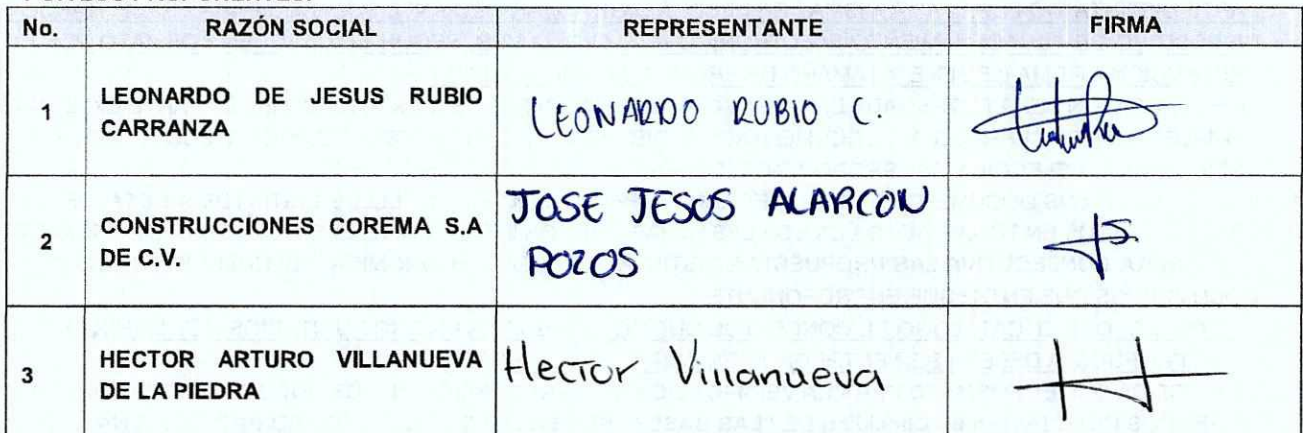 No. RAZÓN SOCIAL REPRESENTANTE FIRMA
1 LEONARDO DE JESUS RUBIO CARRANZA LEONARDO RUBIO C.
2 CONSTRUCCIONES COREMA S.A DE C.V. JOSE JESUS ALARCON POZOS
3 HECTOR ARTURO VILLANUEVA DE LA PIEDRA Hector Villanueva